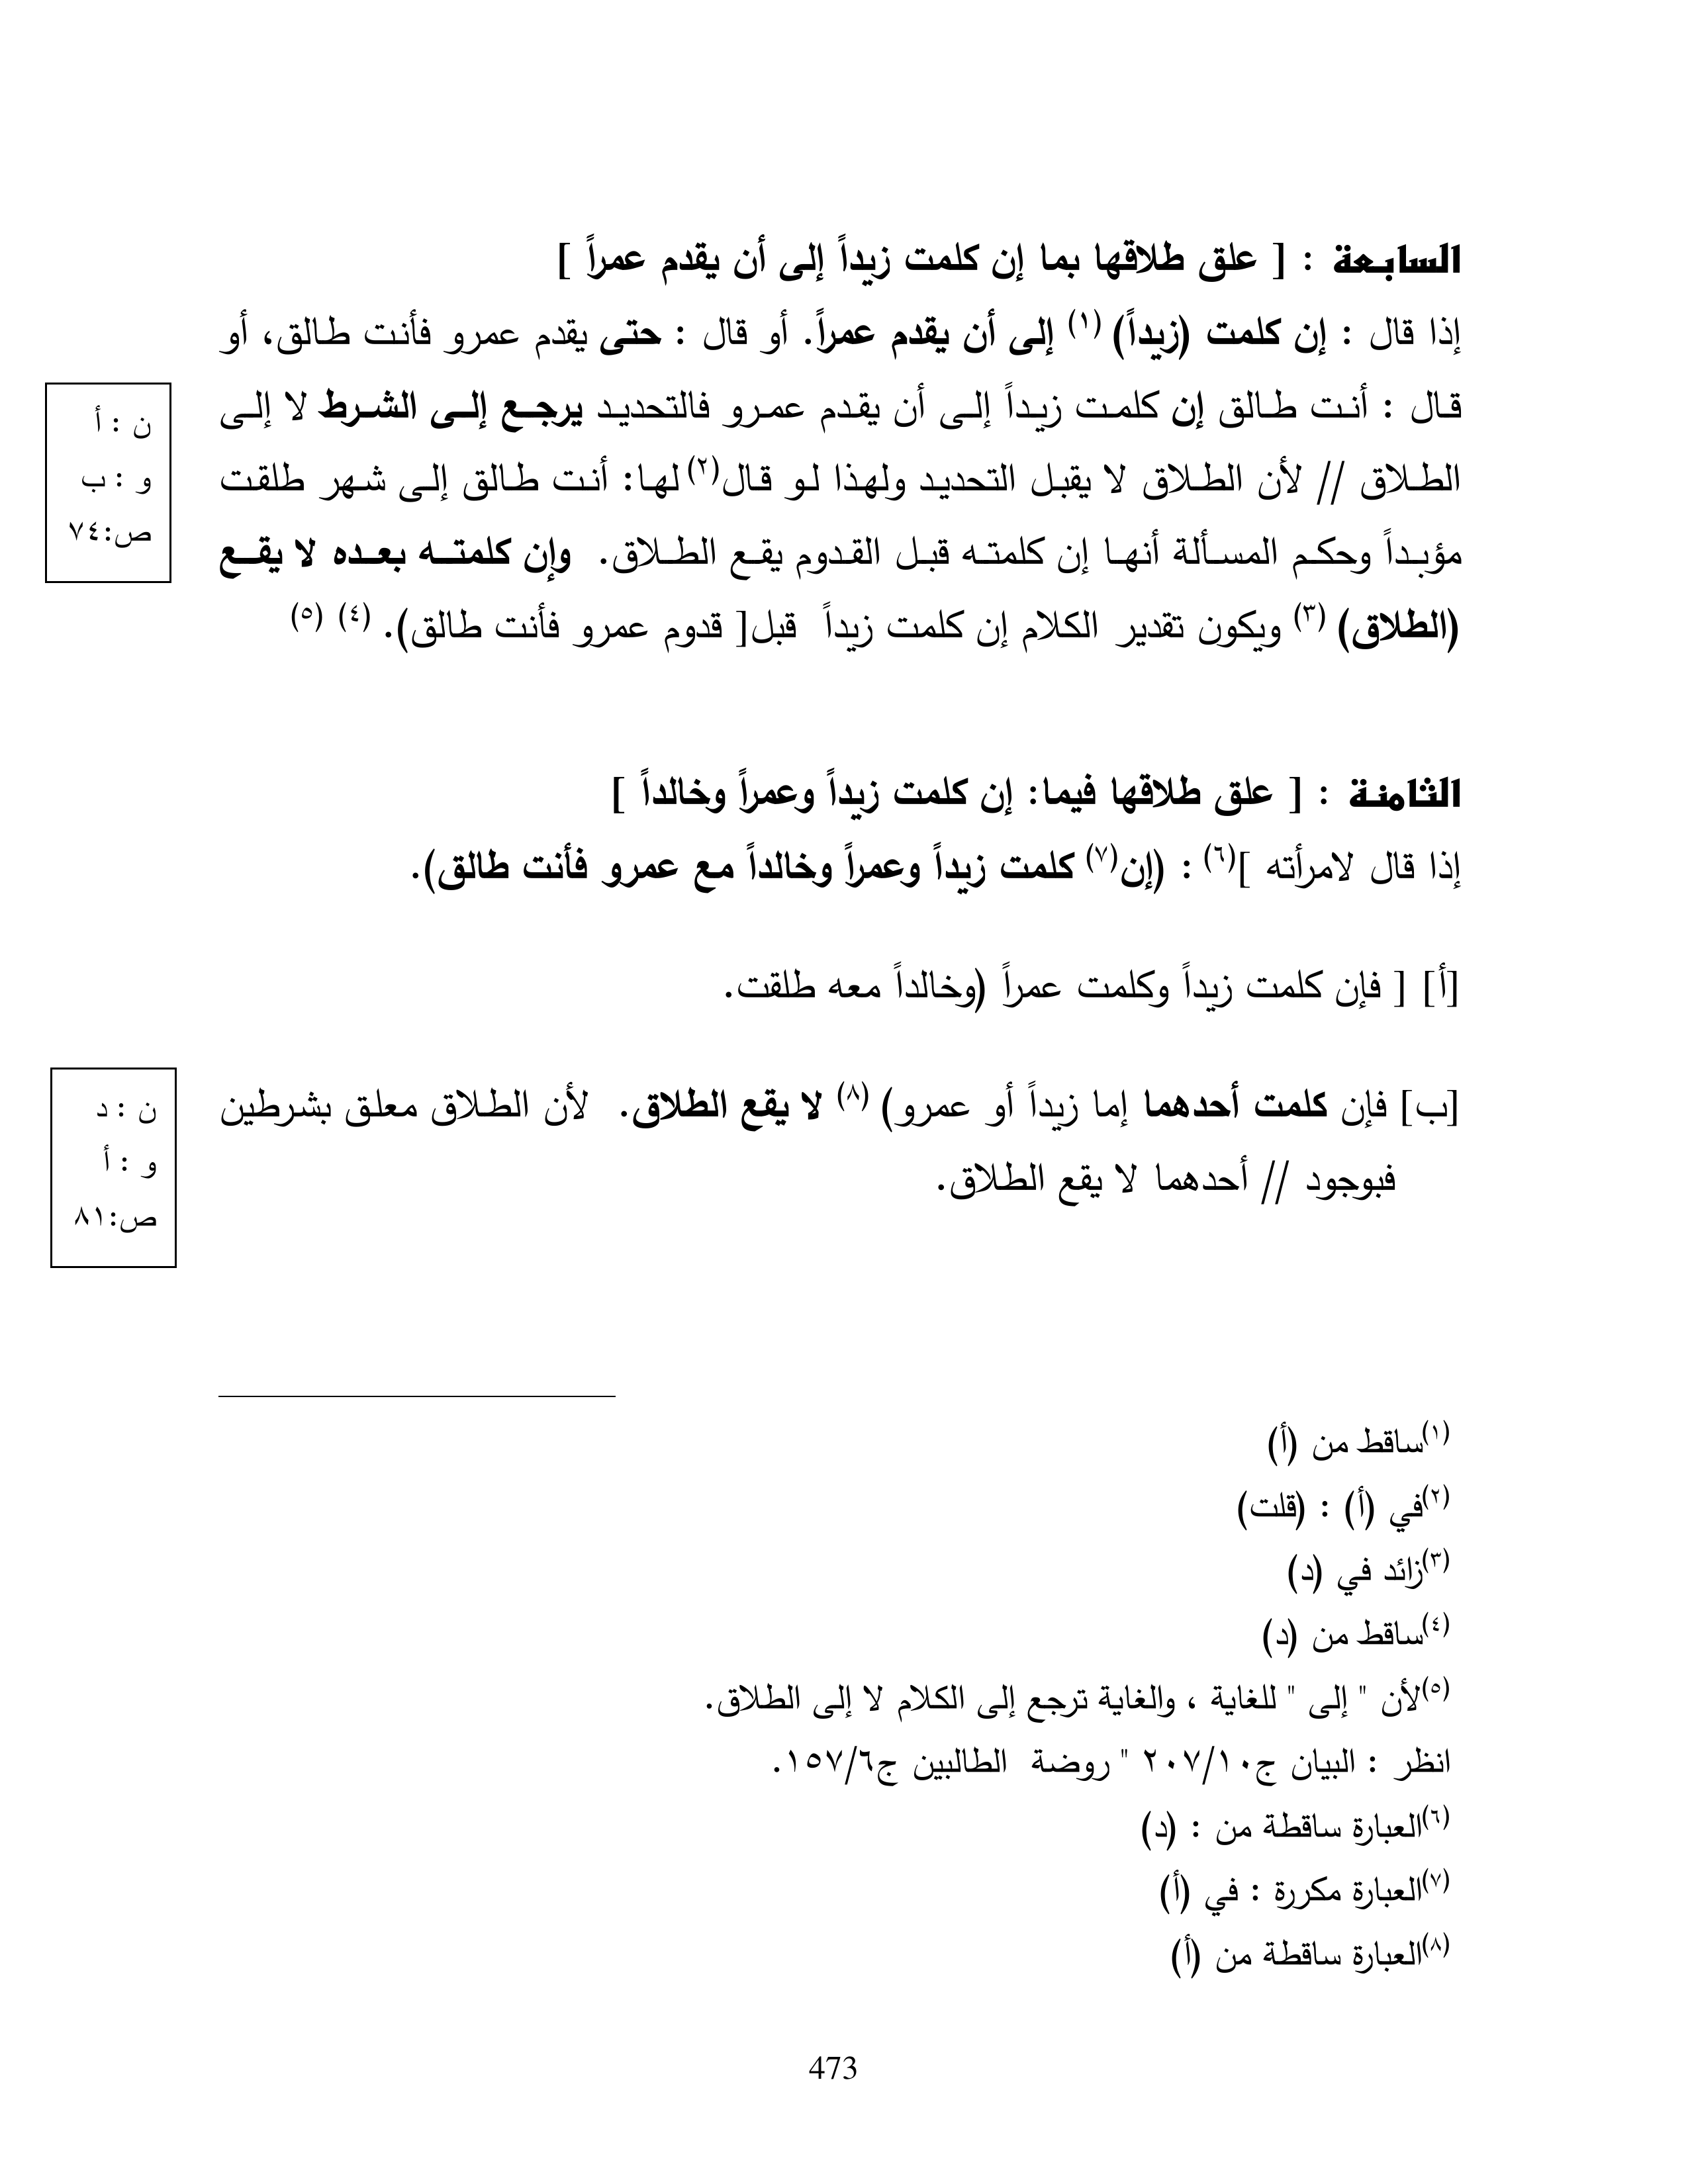 السابعة : [ علق طلاقها بما إن كلمت زيداً إلى أن يقدم عمراً ]
إذا قال : إن كلمت (زيداً) (١) إلى أن يقدم عمراً. أو قال : حتى يقدم عمرو فأنت طالق، أو
قال : أنت طالق إن كلمت زيداً إلى أن يقدم عمرو فالتحديد يرجع إلى الشرط لا إلى
الطلاق // لأن الطلاق لا يقبل التحديد ولهذا لو قال(٢) لها: أنت طالق إلى شهر طلقت
مؤبداً وحكم المسألة أنها إن كلمته قبل القدوم يقع الطلاق. وإن كلمته بعده لا يقع
(الطلاق) (٣) ويكون تقدير الكلام إن كلمت زيداً قبل[ قدوم عمرو فأنت طالق). (٤) (٥)
ن : أ
و : ب
ص:٧٤
الثامنة : [ علق طلاقها فيما: إن كلمت زيداً وعمراً وخالداً ]
إذا قال لامرأته ](٦) : (إن(٧) كلمت زيداً وعمراً وخالداً مع عمرو فأنت طالق).
[أ] [ فإن كلمت زيداً وكلمت عمراً (وخالداً معه طلقت.
[ب] فإن كلمت أحدهما إما زيداً أو عمرو) (٨) لا يقع الطلاق. لأن الطلاق معلق بشرطين
فبوجود // أحدهما لا يقع الطلاق.
ن : د
و : أ
ص:٨١
(١)ساقط من (أ)
(٢)في (أ) : (قلت)
(٣)زائد في (د)
(٤)ساقط من (د)
(٥)لأن " إلى " للغاية ، والغاية ترجع إلى الكلام لا إلى الطلاق.
انظر : البيان ج٢٠٧/١٠ " روضة الطالبين ج١٥٧/٦.
(٦)العبارة ساقطة من : (د)
(٧)العبارة مكررة : في (أ)
(٨)العبارة ساقطة من (أ)
473